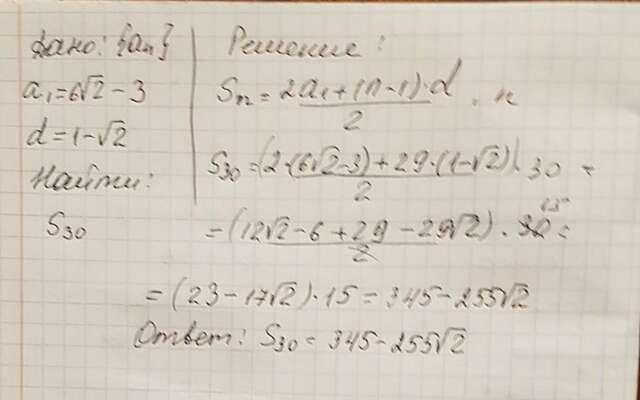 Дано: {aₙ}
a₁=6√2-3
d=1-√2
Найти:
S₃₀
Решение:
Sₙ = (2a₁+(n-1)·d)/2 · n
S₃₀ = (2·(6√2-3)+29·(1-√2))/2 · 30 =
= (12√2-6+29-29√2)/2 · 30 =
15
= (23-17√2)·15 = 345-255√2
Ответ: S₃₀ = 345-255√2